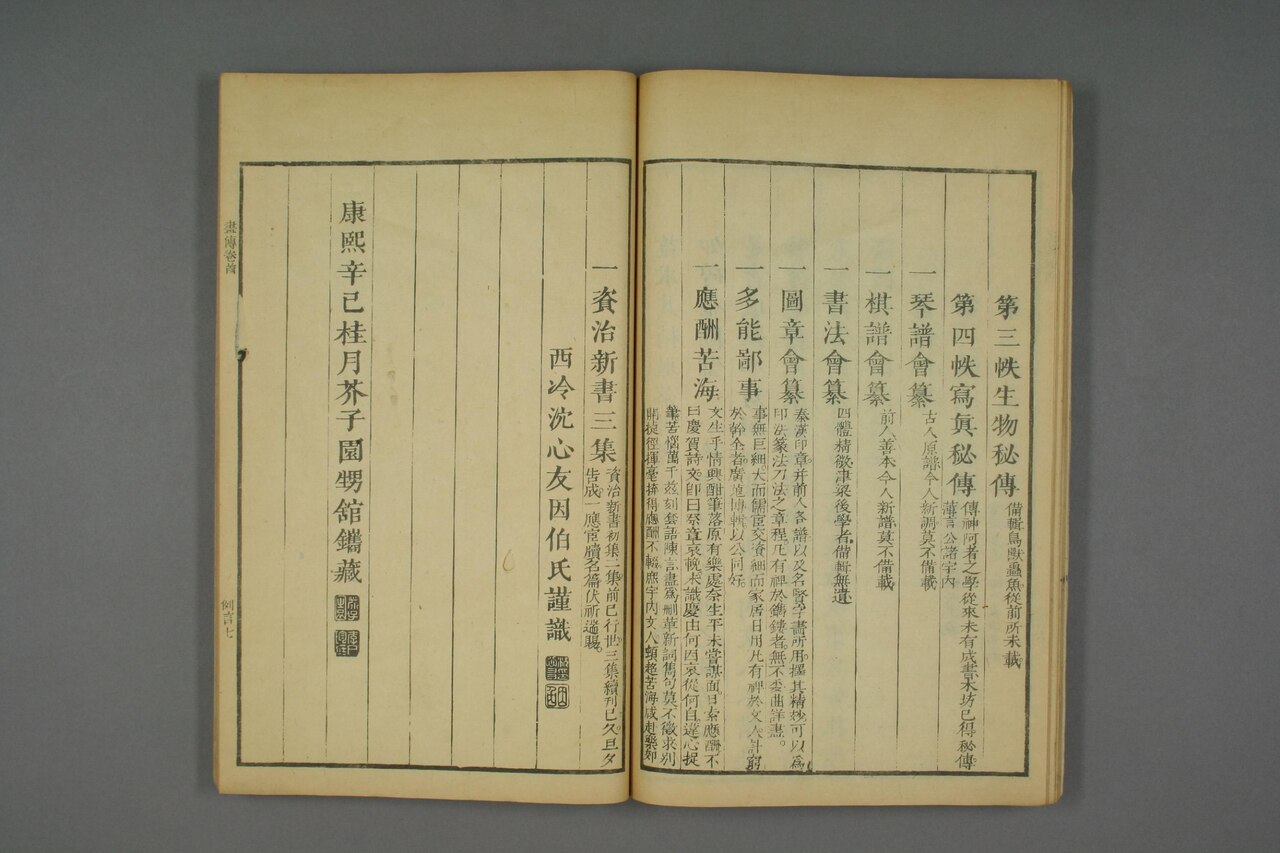 第三帙生物秘傳 備輯鳥獸蟲魚從前所未載
第四帙寫眞秘傳 傳神阿者之學從來未有成書本坊已得秘傳
薄言公諸宇內
一琴譜會纂 古人原譜今人新調莫不備載
一棋譜會纂 前人善本今人新譜莫不備載
一書法會纂 四體精微津梁後學者備輯無遺
一圖章會纂 秦漢印章并前人各譜以及名賢字畫所用擇其精妙可以為
印法篆法刀法之章程凡有裨於鐫鏤者無不委曲詳盡
一多能鄙事 事無巨細大而儒宦交資細而家居日用凡有裨於文人計窮
於幹全者廣蒐博輯以公同好
一應酬苦海 文生乎情興酣筆落原有樂處奈生平未嘗謀面日索應酬不
曰慶賀詩文卽曰祭章哀輓未識慶由何因哀從何自違心捉
筆苦惱萬千茲刻套語陳言盡為刪革新詞雋句莫不徵求別
開捷徑揮毫拚得應酬不輟庶宇內文人頓超苦海咸赴樂郊
一資治新書三集 資治新書初集二集前已行世三集續刊已久旦夕
告成一應宦牘名篇伏祈遄賜
西泠沈心友因伯氏謹識
康熙辛巳桂月芥子園甥舘鐫藏
畫傳卷首
例言七